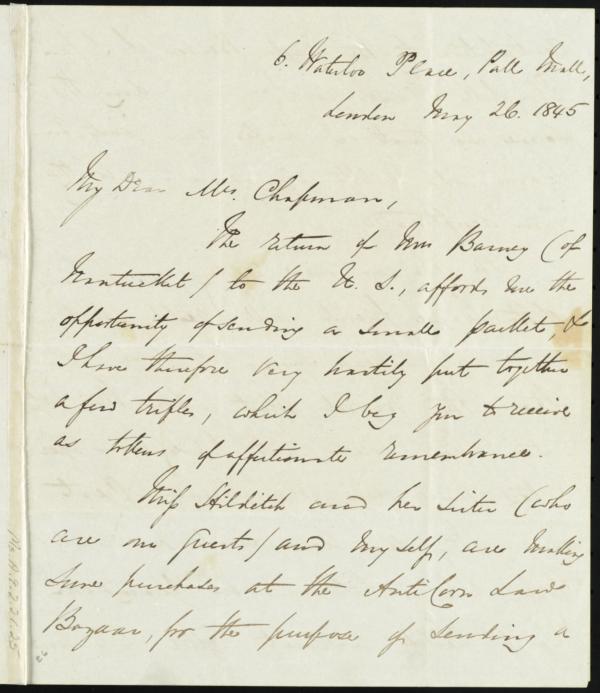 6. Waterloo Place, Pall Mall,
London May 26. 1845
My Dear Mrs. Chapman,
The return of Miss Barney (of
Nantucket) to the U. S., affords me the
opportunity of sending a small packet, &
I have therefore very hastily put together
a few trifles, which I beg you to receive
as tokens of affectionate remembrance.
Miss Hilditch and her sister (who
are our guests) and myself, are making
some purchases at the Anti Corn Law
Bazaar, for the purpose of sending a